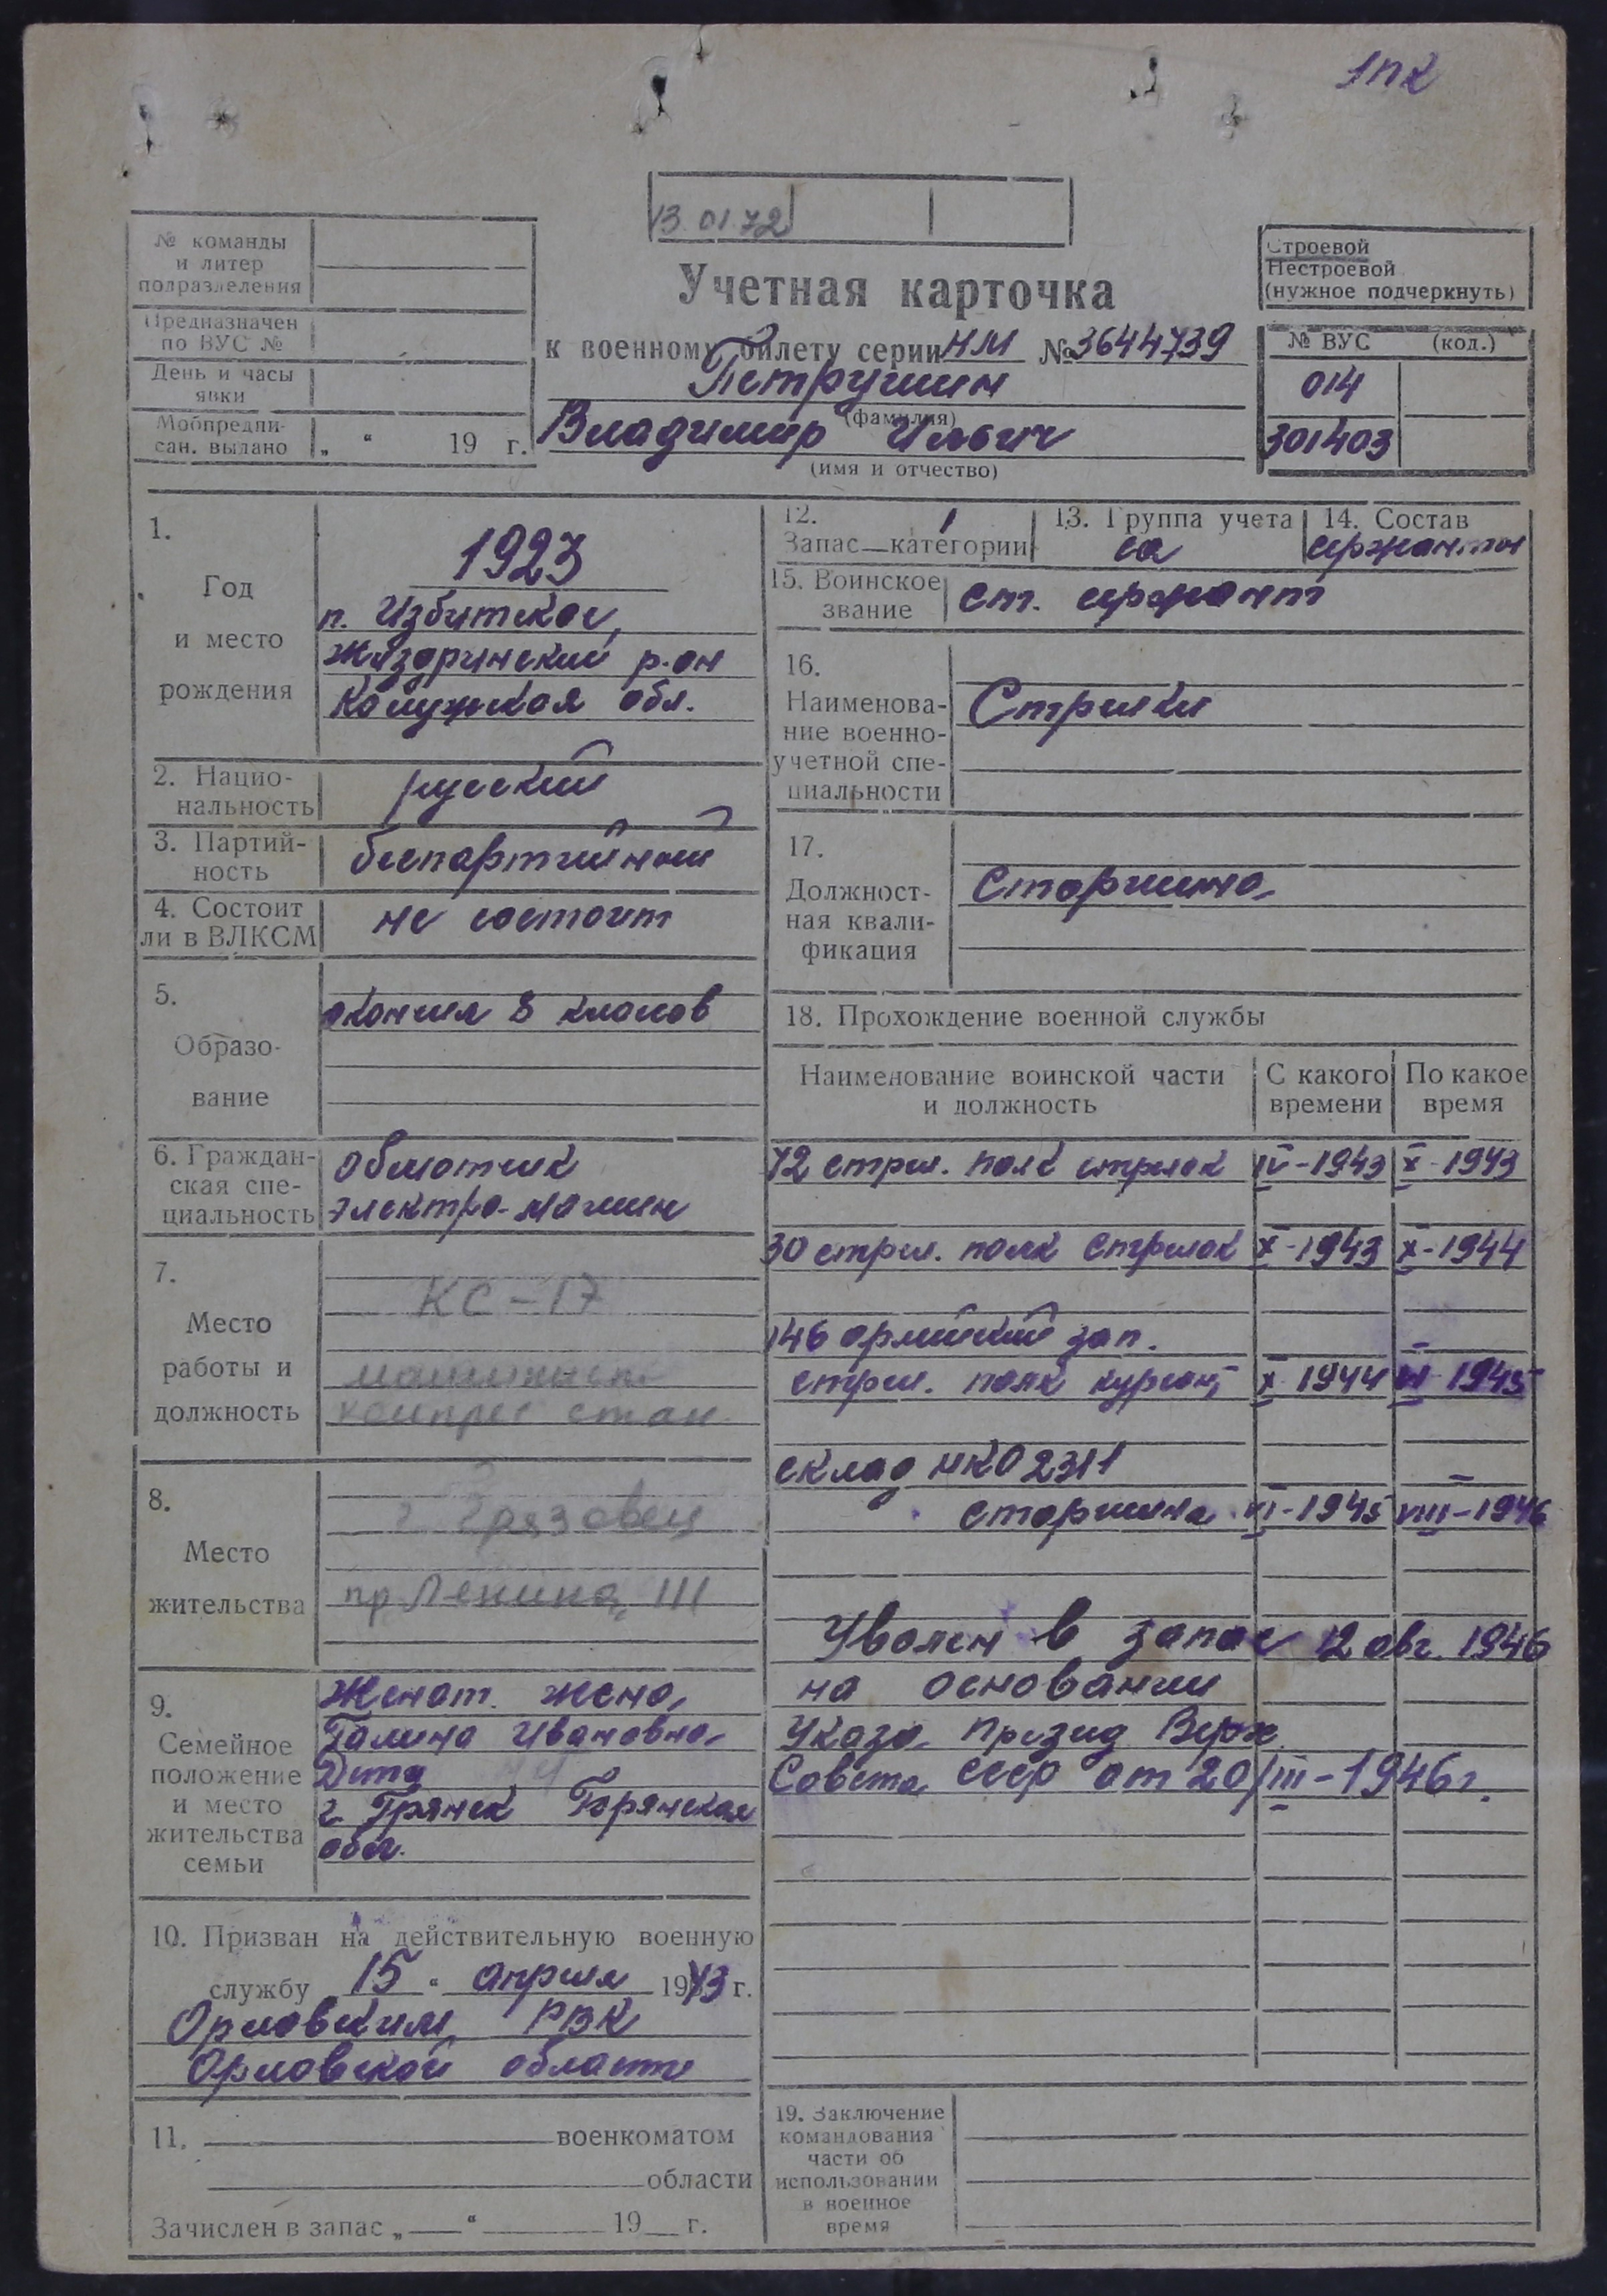 1пк
13.01.72
№ команды
и литер
подразделения
Предназначен
по ВУС №
День и часы
явки
Мобпредпи-
сан. выдано „ “ 19 г.
Учетная карточка
к военному билету серии НМ № 3644739
Петрушин
(фамилия)
Владимир Ильич
(имя и отчество)
Строевой
Нестроевой
(нужное подчеркнуть)
№ ВУС (код.)
014
301403
1.
Год
и место
рождения
1923
п. Избитское,
Жиздринский р-он
Калужская обл.
2. Нацио-
нальность
русский
3. Партий-
ность
беспартийный
4. Состоит
ли в ВЛКСМ
не состоит
5.
Образо-
вание
окончил 8 классов
6. Граждан-
ская спе-
циальность
обмотчик
электро-машин
7.
Место
работы и
должность
КС-17
машинист
компрес стан.
8.
Место
жительства
г. Грязовец
пр. Ленина,
9.
Семейное
положение
и место
жительства
семьи
Женат. жена,
Галина Ивановна
Дети
г. Брянск Брянская
обл.
10. Призван на действительную военную
службу 15 “ апреля 1943 г.
Орловским РВК
Орловской области
11. военкоматом
области
Зачислен в запас „ “ 19 г.
12. 1
Запас—категории
13. Группа учета
са
14. Состав
сержанты
15. Воинское
звание
ст. сержант
16.
Наименова-
ние военно-
учетной спе-
циальности
Стрелки
17.
Должност-
ная квали-
фикация
Старшина
18. Прохождение военной службы
Наименование воинской части
и должность
С какого
времени
По какое
время
72 стрел. полк стрелок IV-1943 X-1943
30 стрел. полк стрелок X-1943 X-1944
146 армейский зап.
стрел. полк курсант X 1944 VI 1945
склад НКО 2311
старшина VI-1945 VIII-1946
Уволен в запас 12 авг. 1946
на основании
Указа Презид Верх.
Совета СССР от 20/III-1946г.
19. Заключение
командования
части об
использовании
в военное
время